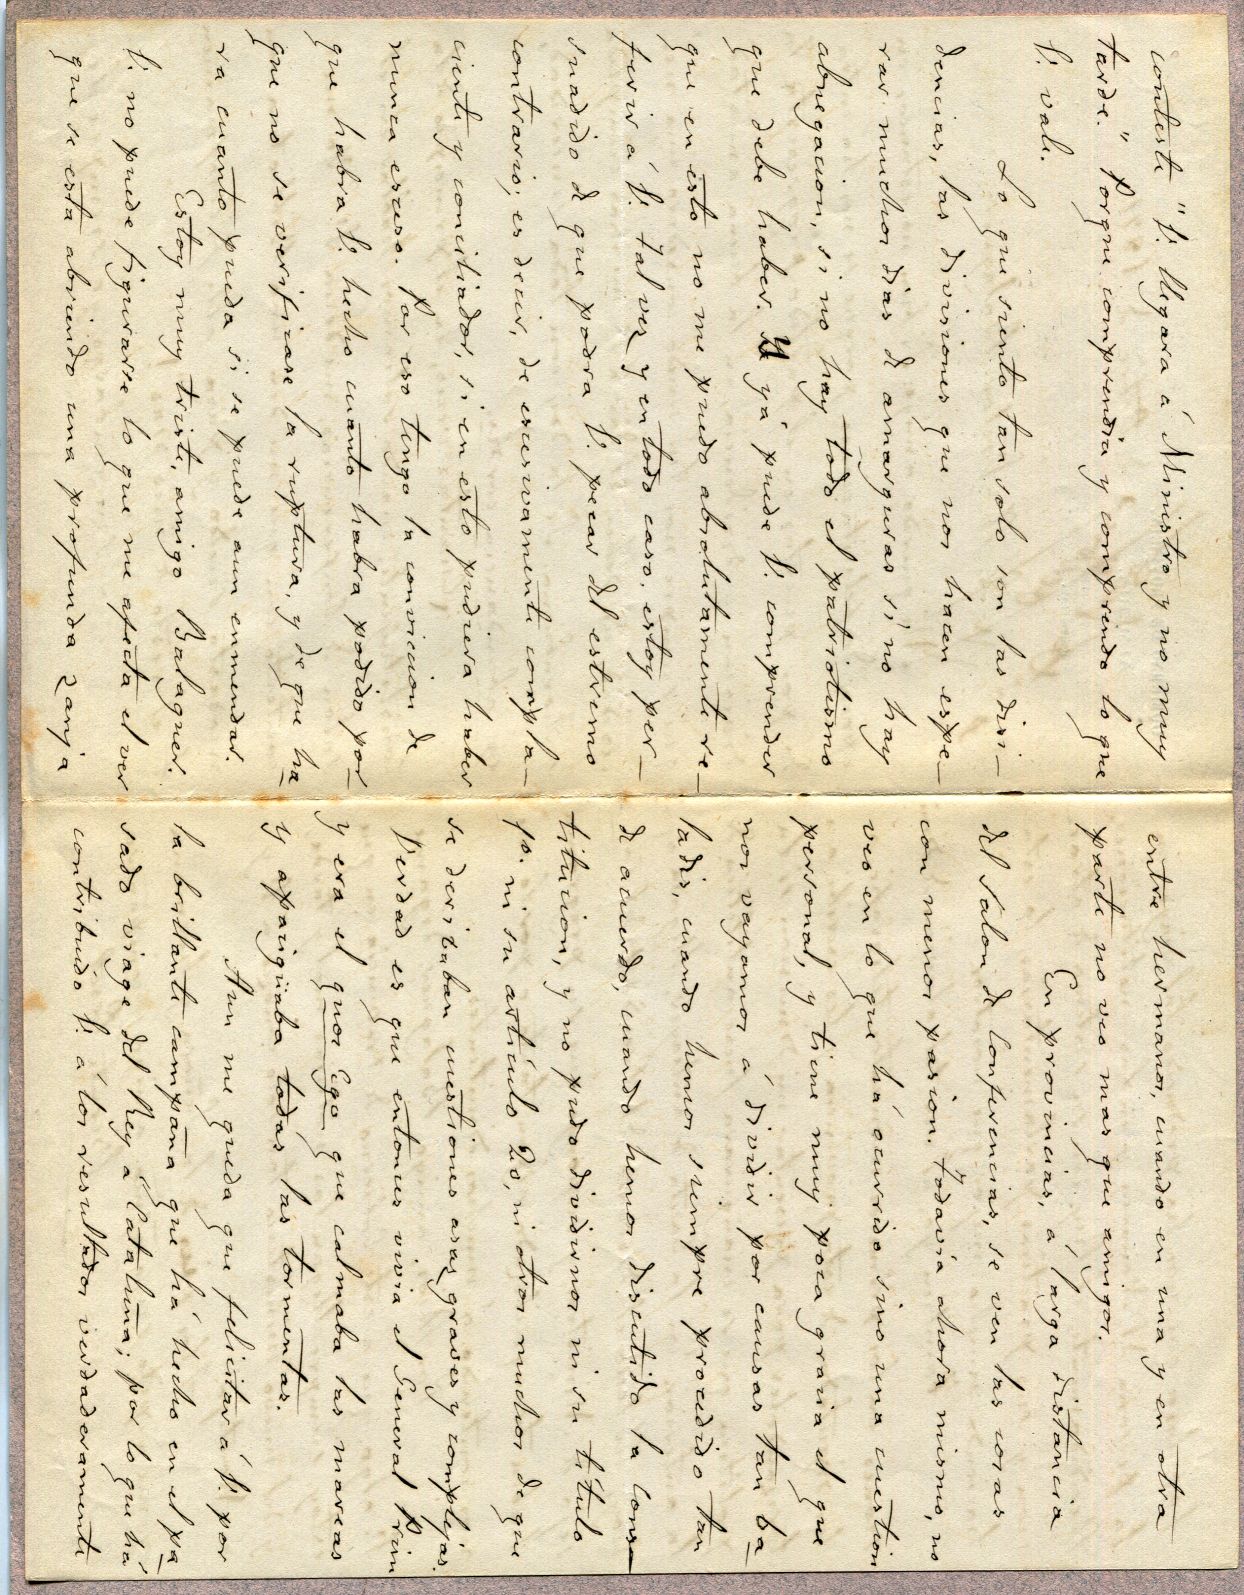 conteste "V. llegara á Ministro y no muy
tarde." Porque comprendia y comprendo lo que
V. vale.
Lo que siento tan solo son las disi-
dencias, las divisiones que nos hacen espe-
rar muchos dias de amarguras si no hay
abnegacion, si no hay todo el patriotismo
que debe haber. Y yá puede V. comprender
que en esto no me puedo absolutamente re-
ferir á V. tal vez y en todo caso. estoy per-
suadido de que podra V. pecar del estremo
contrario; es decir, de escesivamente compla-
ciente y conciliador, si en esto pudiera haber
nunca esceso. Por eso tengo la conviccion de
que habra V. hecho cuanto habra podido por-
que no se verificase la ruptura, y de que ha-
ra cuanto pueda si se puede aun enmendar.
Estoy muy triste, amigo Balaguer.
V. no puede figurarse lo que me afecta el ver
que se esta abriendo una profunda zanja
entre hermanos, cuando en una y en otra
parte no veo mas que amigos.
En provincias, á larga distancia
del Salon de Conferencias, se ven las cosas
con menos pasion. Todavía ahora mismo, no
veo en lo que há ocurrido sino una cuestion
personal, y tiene muy poca gracia el que
nos vayamos á dividir por causas tan ba-
ladis, cuando hemos siempre procedido tan
de acuerdo, cuando hemos discutido la Cons-
titucion, y no pudo dividirnos ni su título
1o. ni su artículo 20, ni otros muchos de que
se derivaban cuestiones asaz graves y complejas.
Verdad es que entonces vivia el General Prim
y era el quos Ego que calmaba las mareas
y apaciguaba todas las tormentas.
Aun me queda que felicitar á V. por
la brillante campaña que há hecho en el pa-
sado viage del Rey á Cataluña; por lo que há
contribuido V. á los resultados verdaderamente